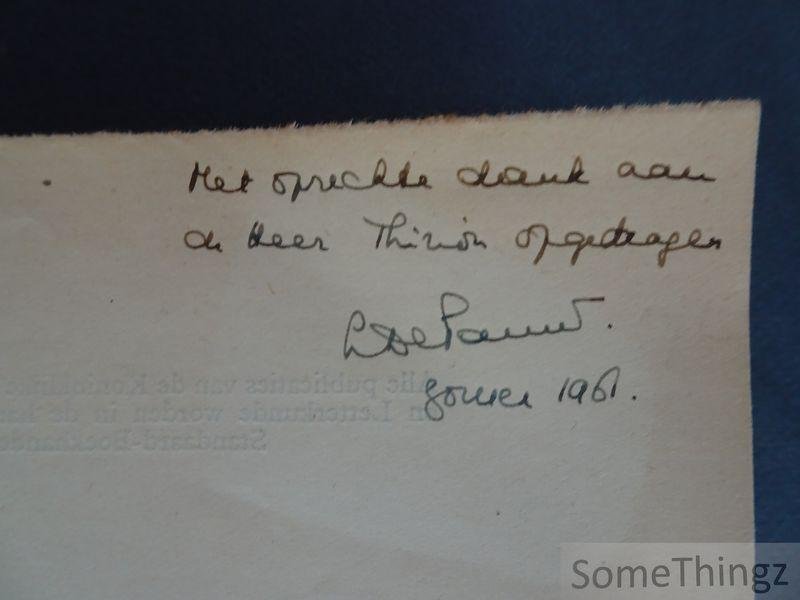 Met oprechte dank aan
de Heer Thirion opgedragen
L. De Pauw.
zomer 1961.
Alle publicaties van de Koninklijke
en Letterkunde worden in de
Standaard-Boekhande
SomeThingz